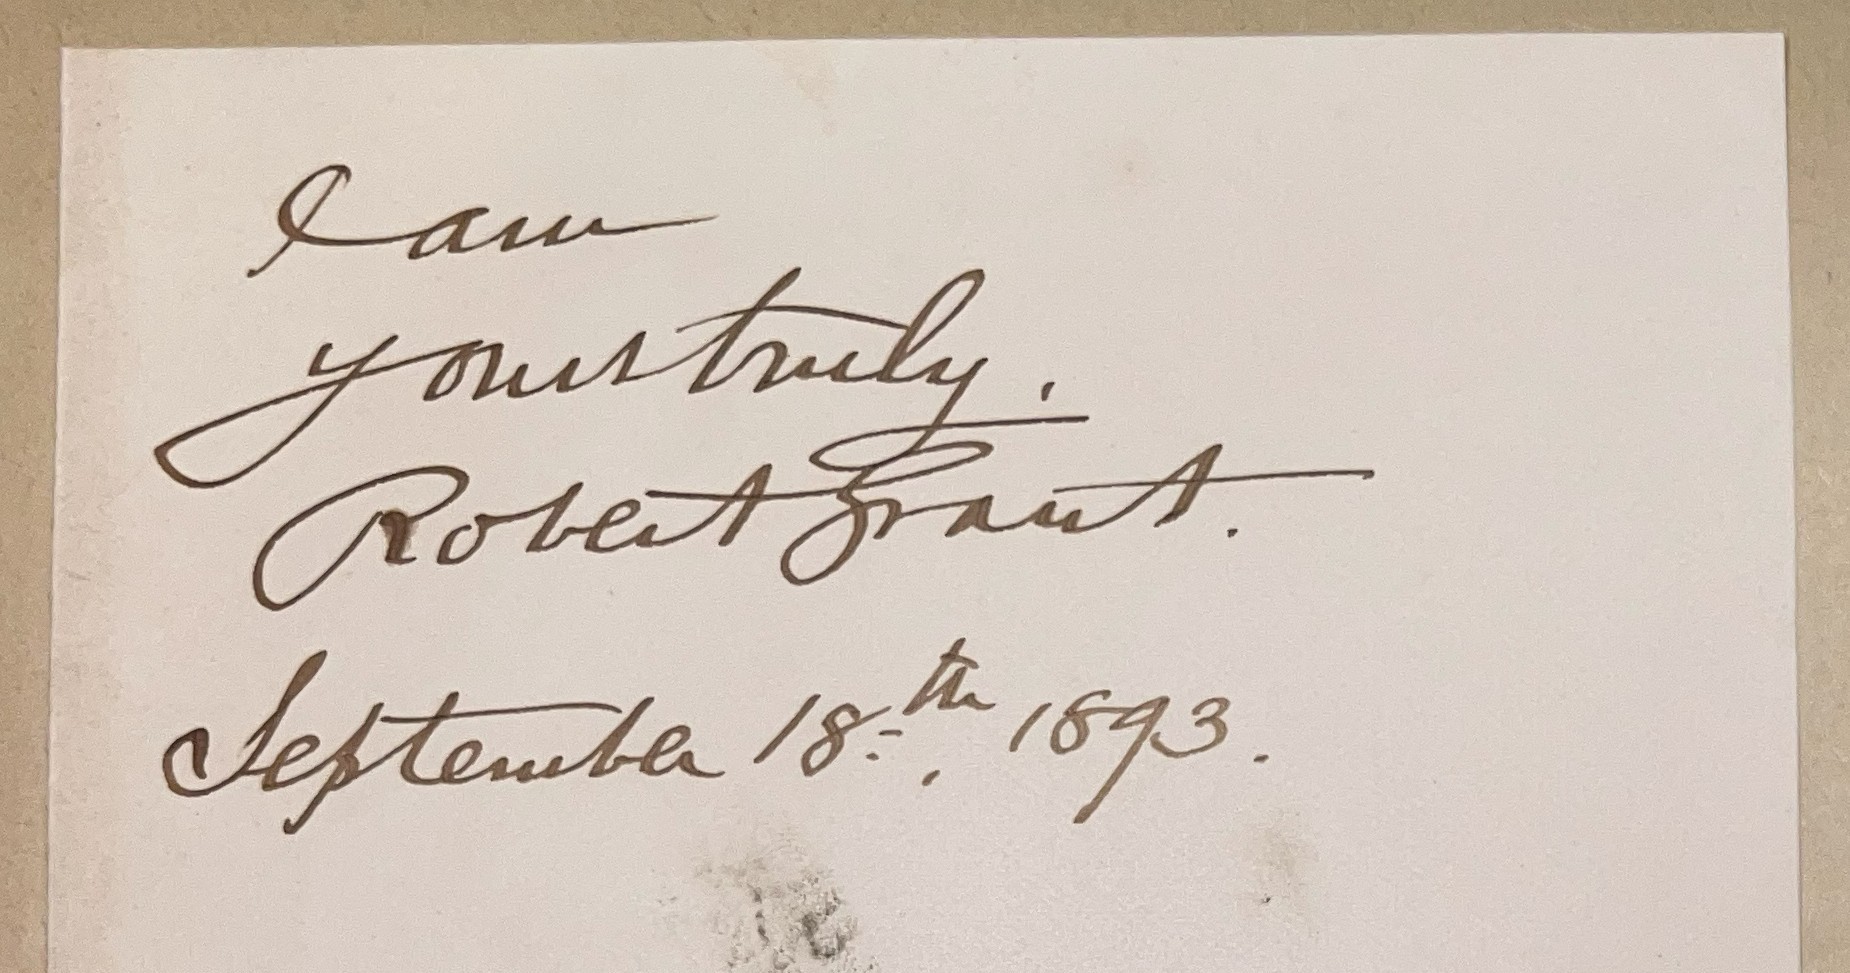 I am
yours truly.
Robert Grant.
September 18th, 1893.